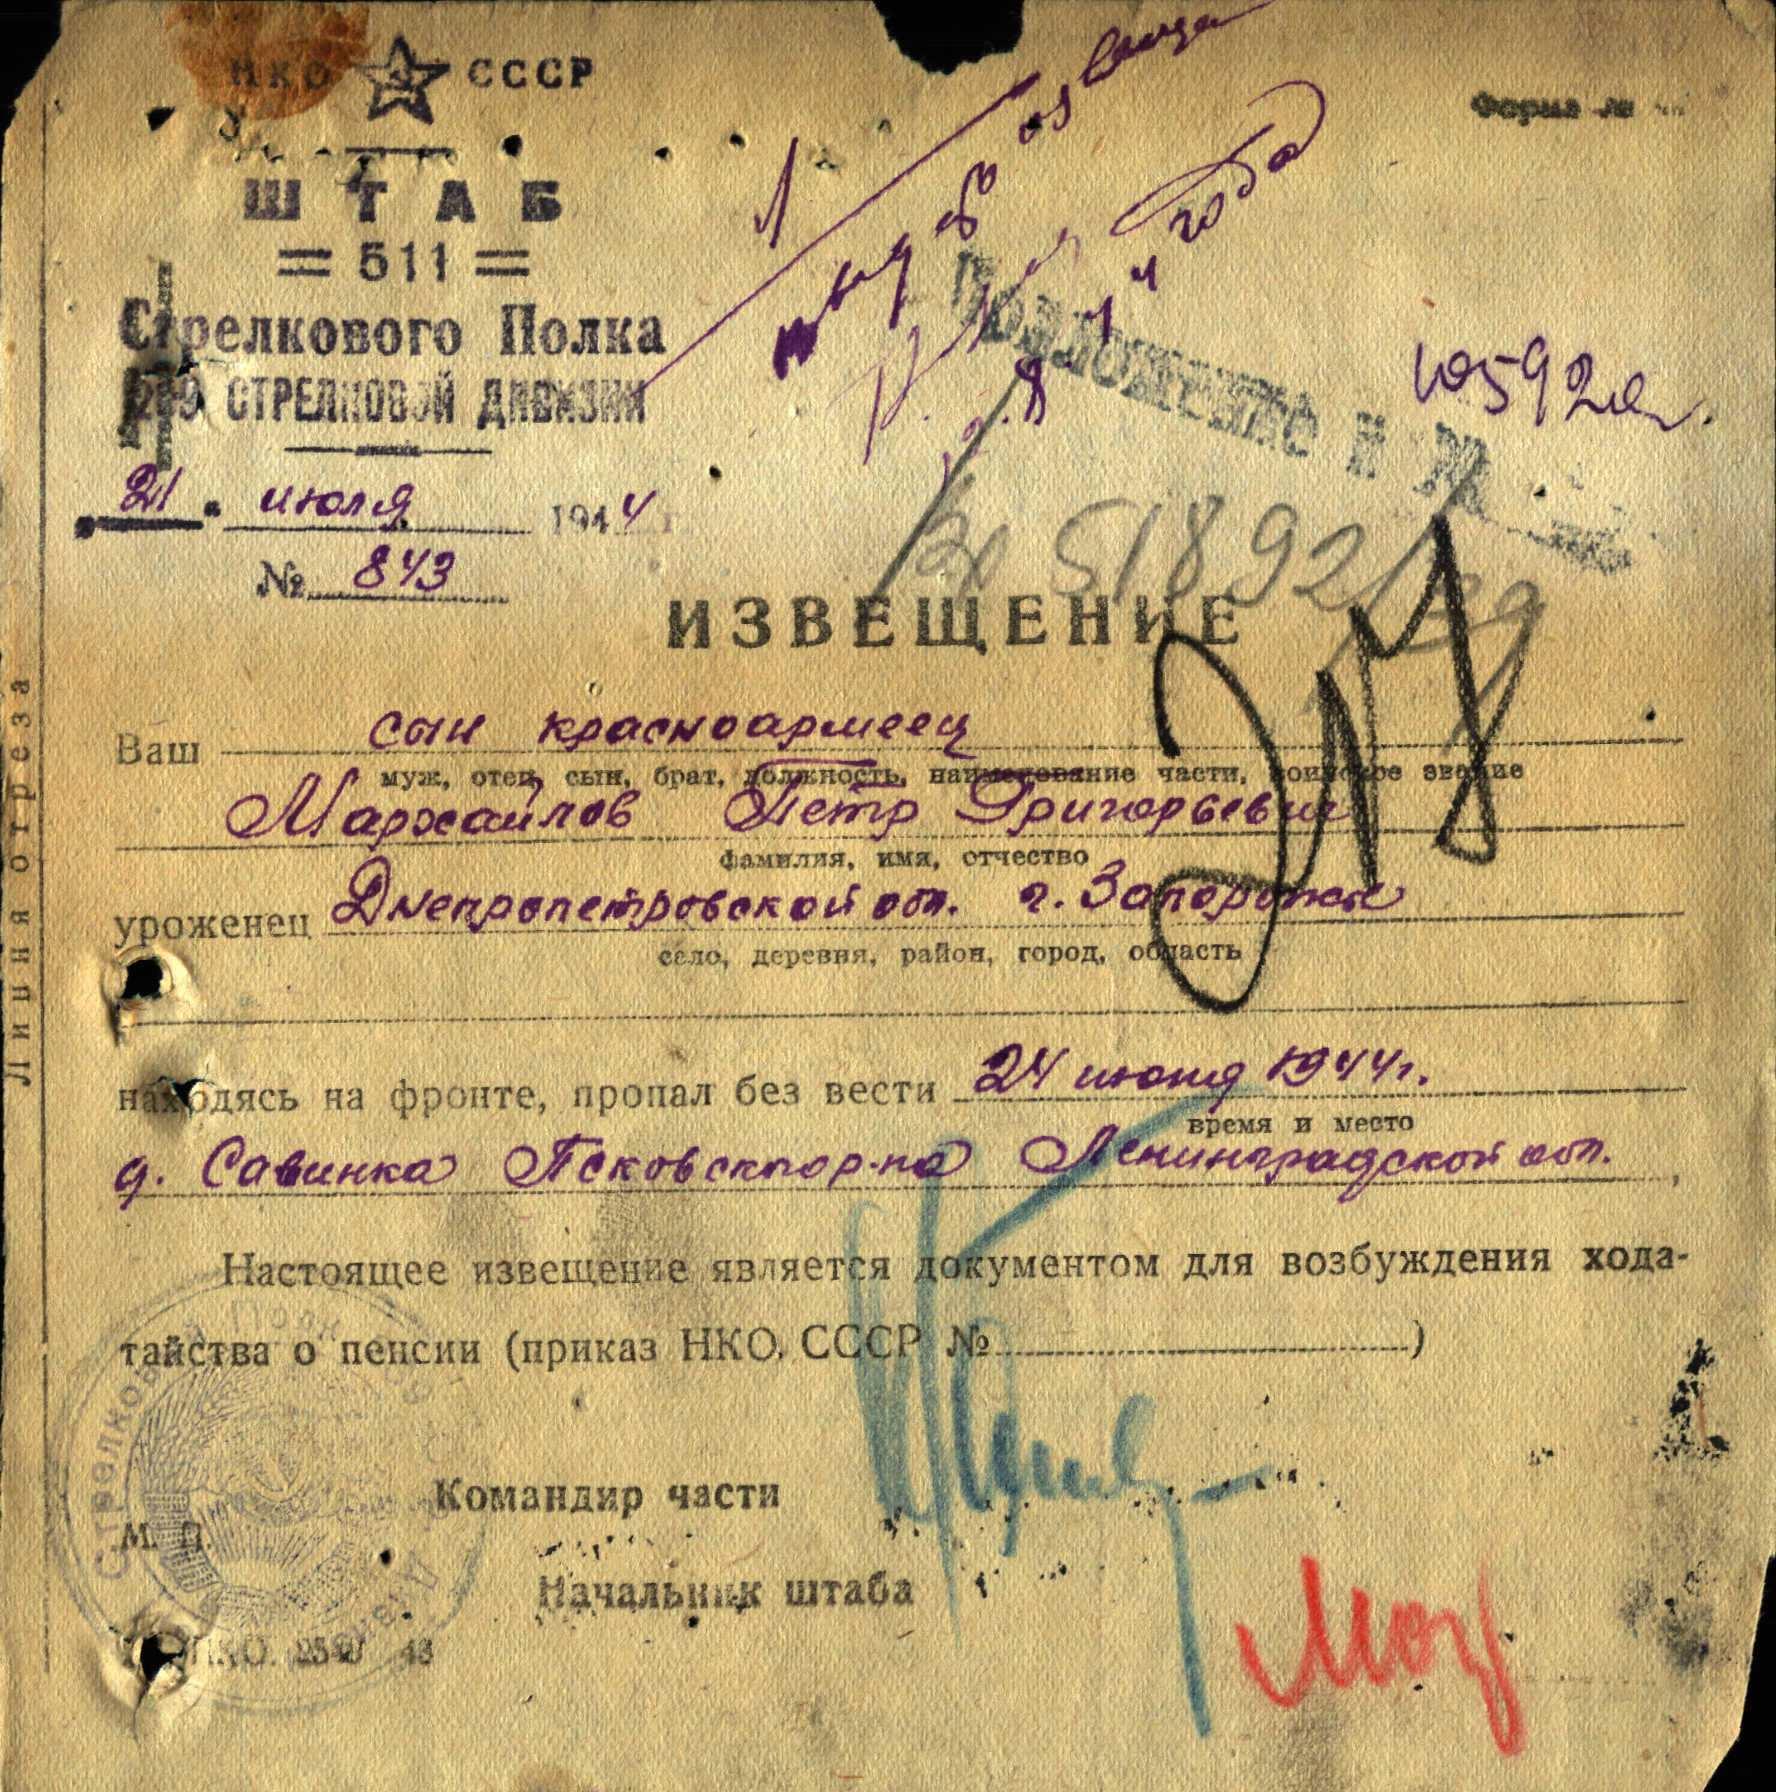 НКО СССР
Форма №
ШТАБ
= 511 =
Стрелкового Полка
СТРЕЛКОВОЙ ДИВИЗИИ
Приложение к №
10592
21 " июля 1944 г.
№ 843
51892
ИЗВЕЩЕНИЕ
Ваш сын красноармеец
муж, отец, сын, брат, должность, наименование части, воинское звание
Маржайлов Петр Григорьевич
фамилия, имя, отчество
уроженец Днепропетровской обл. г. Запорожье
село, деревня, район, город, область
находясь на фронте, пропал без вести 24 июня 1944 г.
время и место
д. Савинка Псковского р-на Ленинградской обл.,
Настоящее извещение является документом для возбуждения хода-
тайства о пенсии (приказ НКО. СССР № )
Командир части
М. П.
Начальник штаба
Линия отреза